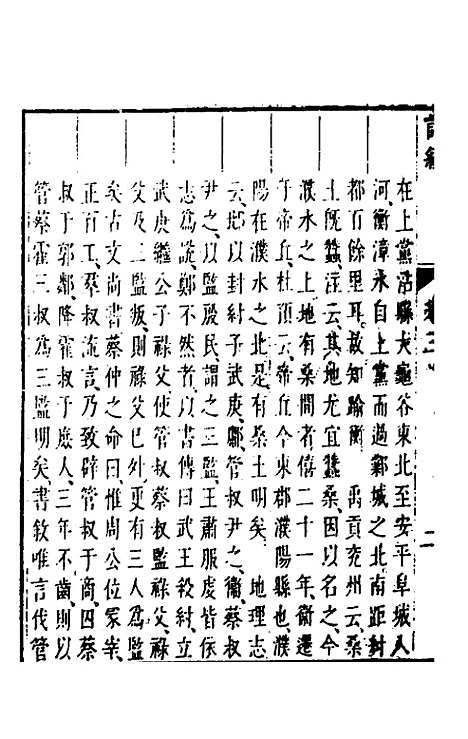 詩疏
卷三
二
在上黨沾縣大黽谷東北至安平阜城入
河衡漳水自上黨而過鄴城之北南距紂
都百餘里耳故知踰衡　禹貢兗州云桑
土既蠶注云其地尤宜蠶桑因以名之今
濮水之上地有桑間者僖三十一年衛遷
于帝丘杜預云帝丘今東郡濮陽縣也濮
陽在濮水之北是有桑土明矣　地理志
云邶以封紂子武庚鄘管叔尹之衛蔡叔
尹之以監殷民謂之三監王肅服虔皆依
志為說鄭不然者以書傳曰武王殺紂立
武庚繼公子祿父使管叔蔡叔監祿父祿
父及三監叛則祿父已外更有三人為監
矣古文尚書蔡仲之命曰惟周公位冢宰
正百工羣叔流言乃致辟管叔于商囚蔡
叔于郭鄰降霍叔于庶人三年不齒則以
管蔡霍三叔為三監明矣書敘唯言伐管